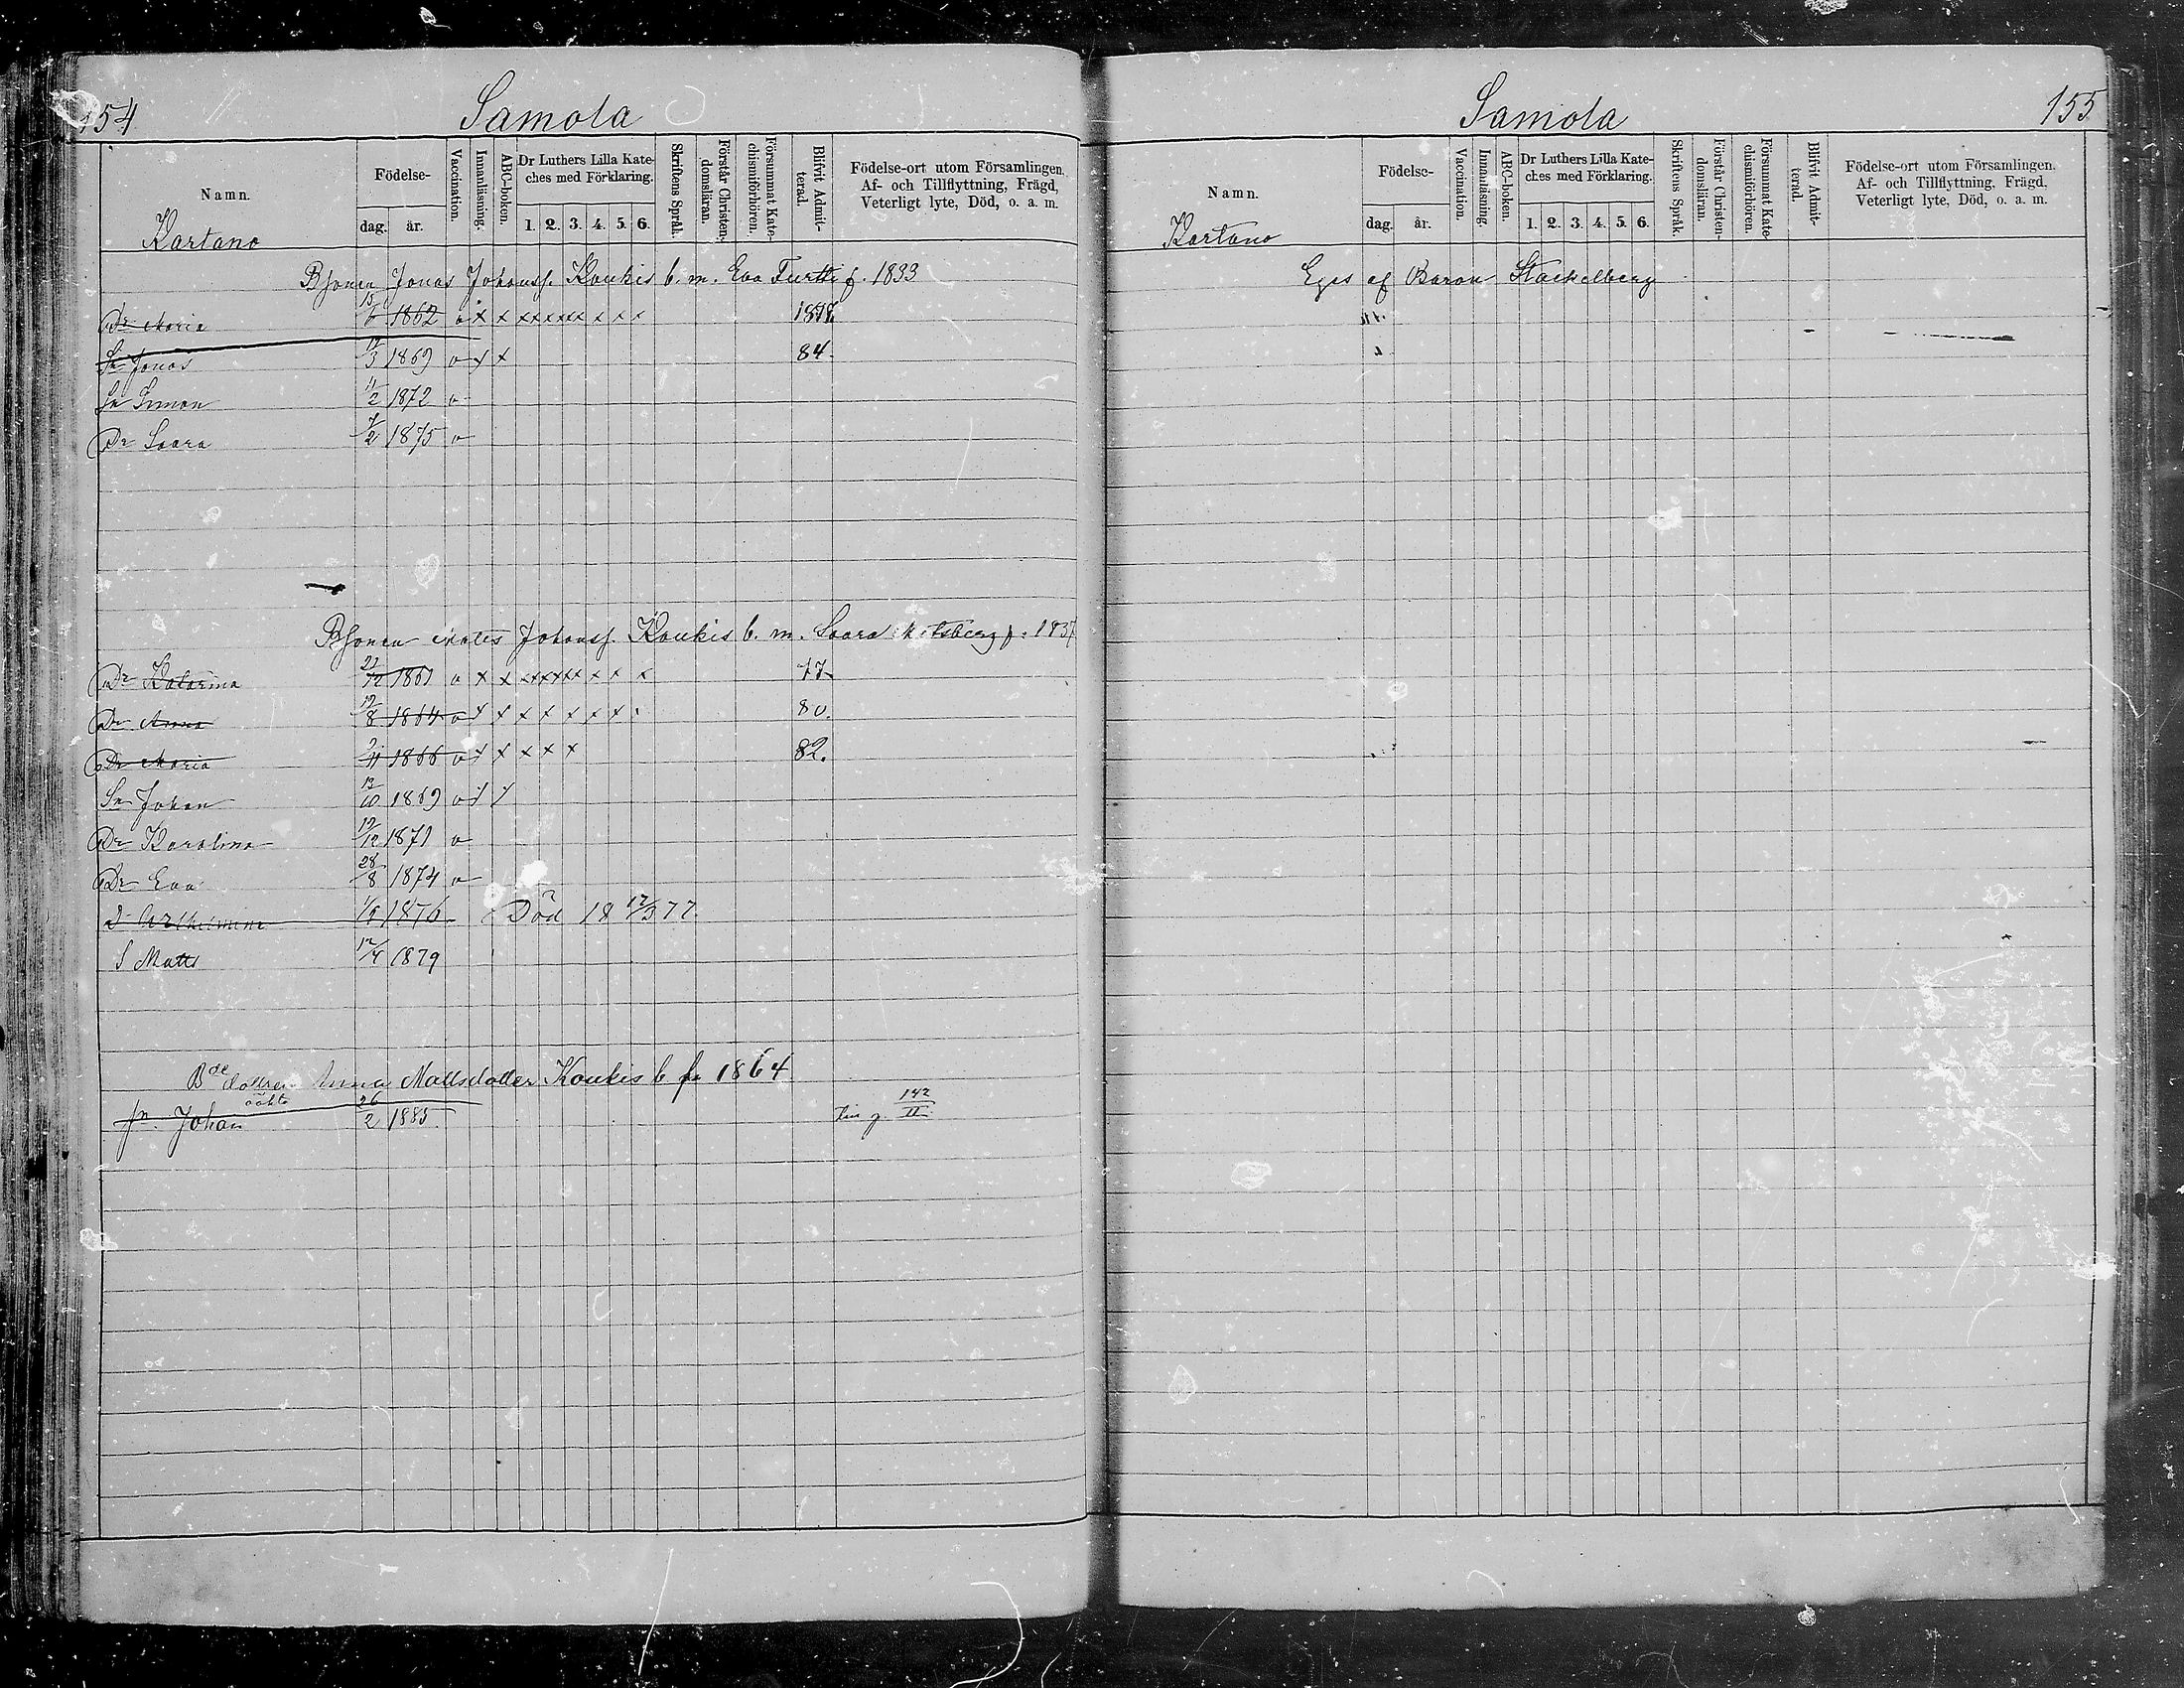 154
Samola
Namn.
Födelse-
dag.
år.
Vaccination.
Innanläsning.
ABC-boken.
Dr Luthers Lilla Kate-
ches med Förklaring.
1. 2. 3. 4. 5. 6.
Skriftens Språk.
Förstår Christen-
domsläran.
Försummat Kate-
chismiförhören.
Blifvit Admit-
terad.
Födelse-ort utom Församlingen.
Af- och Tillflyttning, Frägd,
Veterligt lyte, Död, o. a. m.
Kartano
Jonas Johanss. Koukis b. m. Eva Furtti f. 1833
Dr Maria 15/6 1862 o x x x x x x x x x x 1878.
Sn Jonas 3 1869 o x x 84.
Sn Simon 11/2 1872 o
Dr Saara 4/2 1875 o
Johanss. Koukis b. m. Saara f. 1837
Dr Katarina 1861 o x x x x x x x x x x 77
Dr Anna 8 1864 o x x x x x x x 80.
Dr Maria 1866 o x x x x x 82.
Sn Johan 10 1869 o x x
Dr Karolina 19/12 1871 o
Dr Eva 28/8 1874 o
D Wilhelmina 1876 Död 18 12/3 77
S Matts 12/4 1879
Bde dottren Anna Mattsdotter Koukis b f. 1864
oäkta
sn. Johan 26/2 1885 142/II
155
Samola
Namn.
Födelse-
dag.
år.
Vaccination.
Innanläsning.
ABC-boken.
Dr Luthers Lilla Kate-
ches med Förklaring.
1. 2. 3. 4. 5. 6.
Skriftens Språk.
Förstår Christen-
domsläran.
Försummat Kate-
chismiförhören.
Blifvit Admit-
terad.
Födelse-ort utom Församlingen.
Af- och Tillflyttning, Frägd,
Veterligt lyte, Död, o. a. m.
Kartano
Eges af Baron Stackelberg